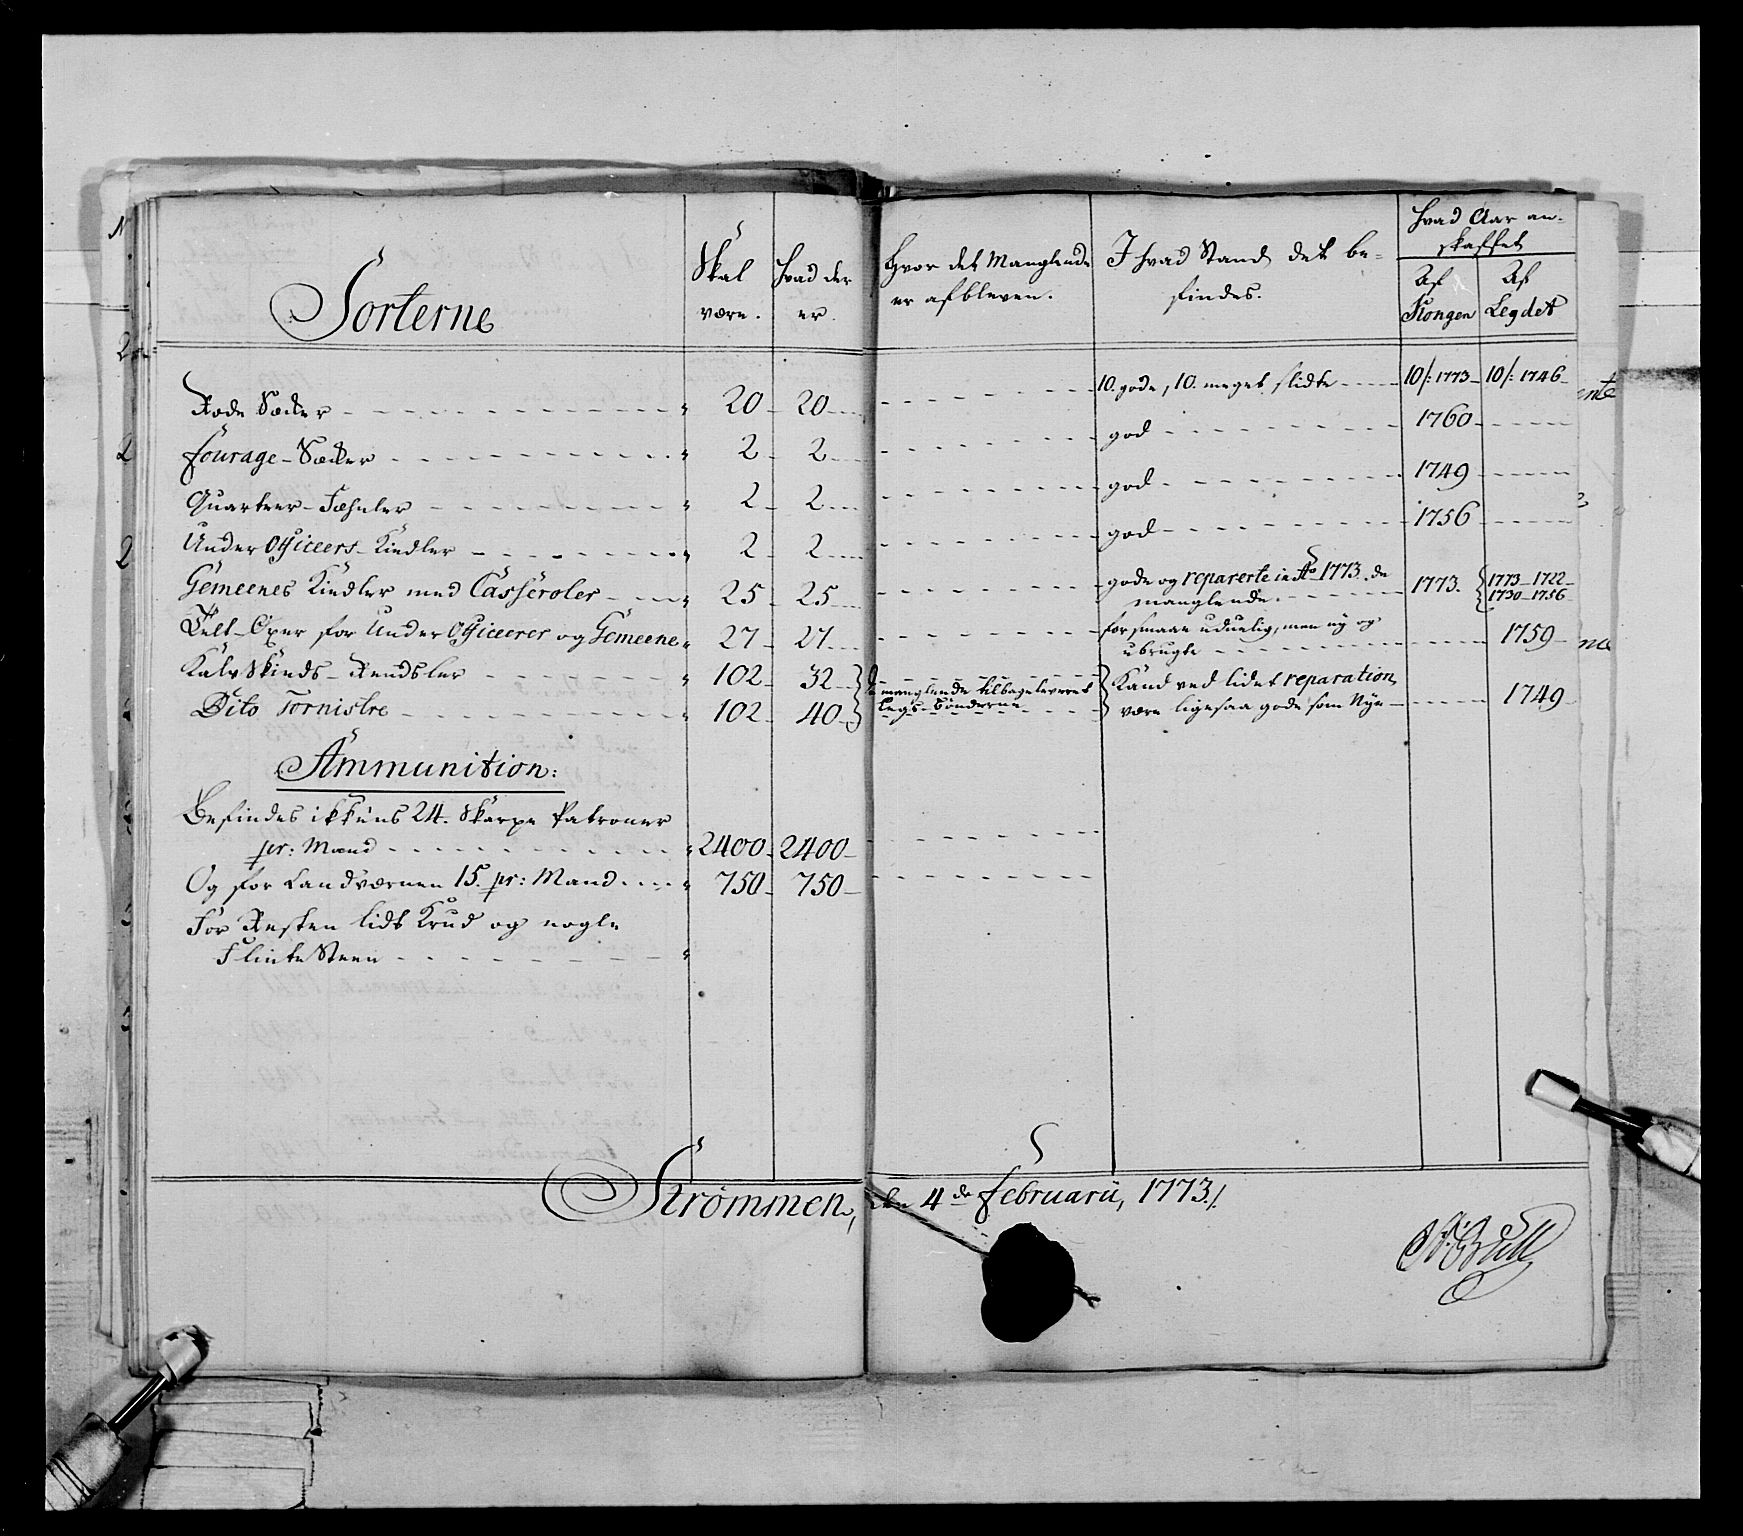 Sorterne
Skal være.
Hvad der er.
Hvor det Manglende er afbleven.
I hvad Stand det be-
findes.
Hvad Aar an-
skaffet
Af Kongen
Af Legdet
Sæcker 20 20 10. gode, 10. meget slidte 10/: 1773 10/: 1746
Fourage-Sæcker 2 2 god 1760
Quarteer-Fæhnler 2 2 god 1749
Under Officeers-Kiedler 2 2 god 1756
Gemeenes Kiedler med Casseroler 25 25 gode og reparerte in Ao 1773. de
manglende. 1773. 1773 1722
1730 1756
Telt-Oxer for Under Officerer og Gemeene 27 27 for smaae uduelig, men ny og
ubrugte 1759
Kalv Skinds-Rendsler 102 32 de manglende tilbageleveret
Legs-Bønderne
Kand ved lidet reparation
være ligesaa gode som Nye 1749
Dito Tornistre 102 40
Ammunition:
Befindes 24. Skarpe Patroner
pr: Mand 2400 2400
Og for Landværnen 15. pr: Mand 750 750
For Resten lidt Krud og nogle
Flinte Steen
Strømmen, den 4de Februarii, 1773./.
Bull